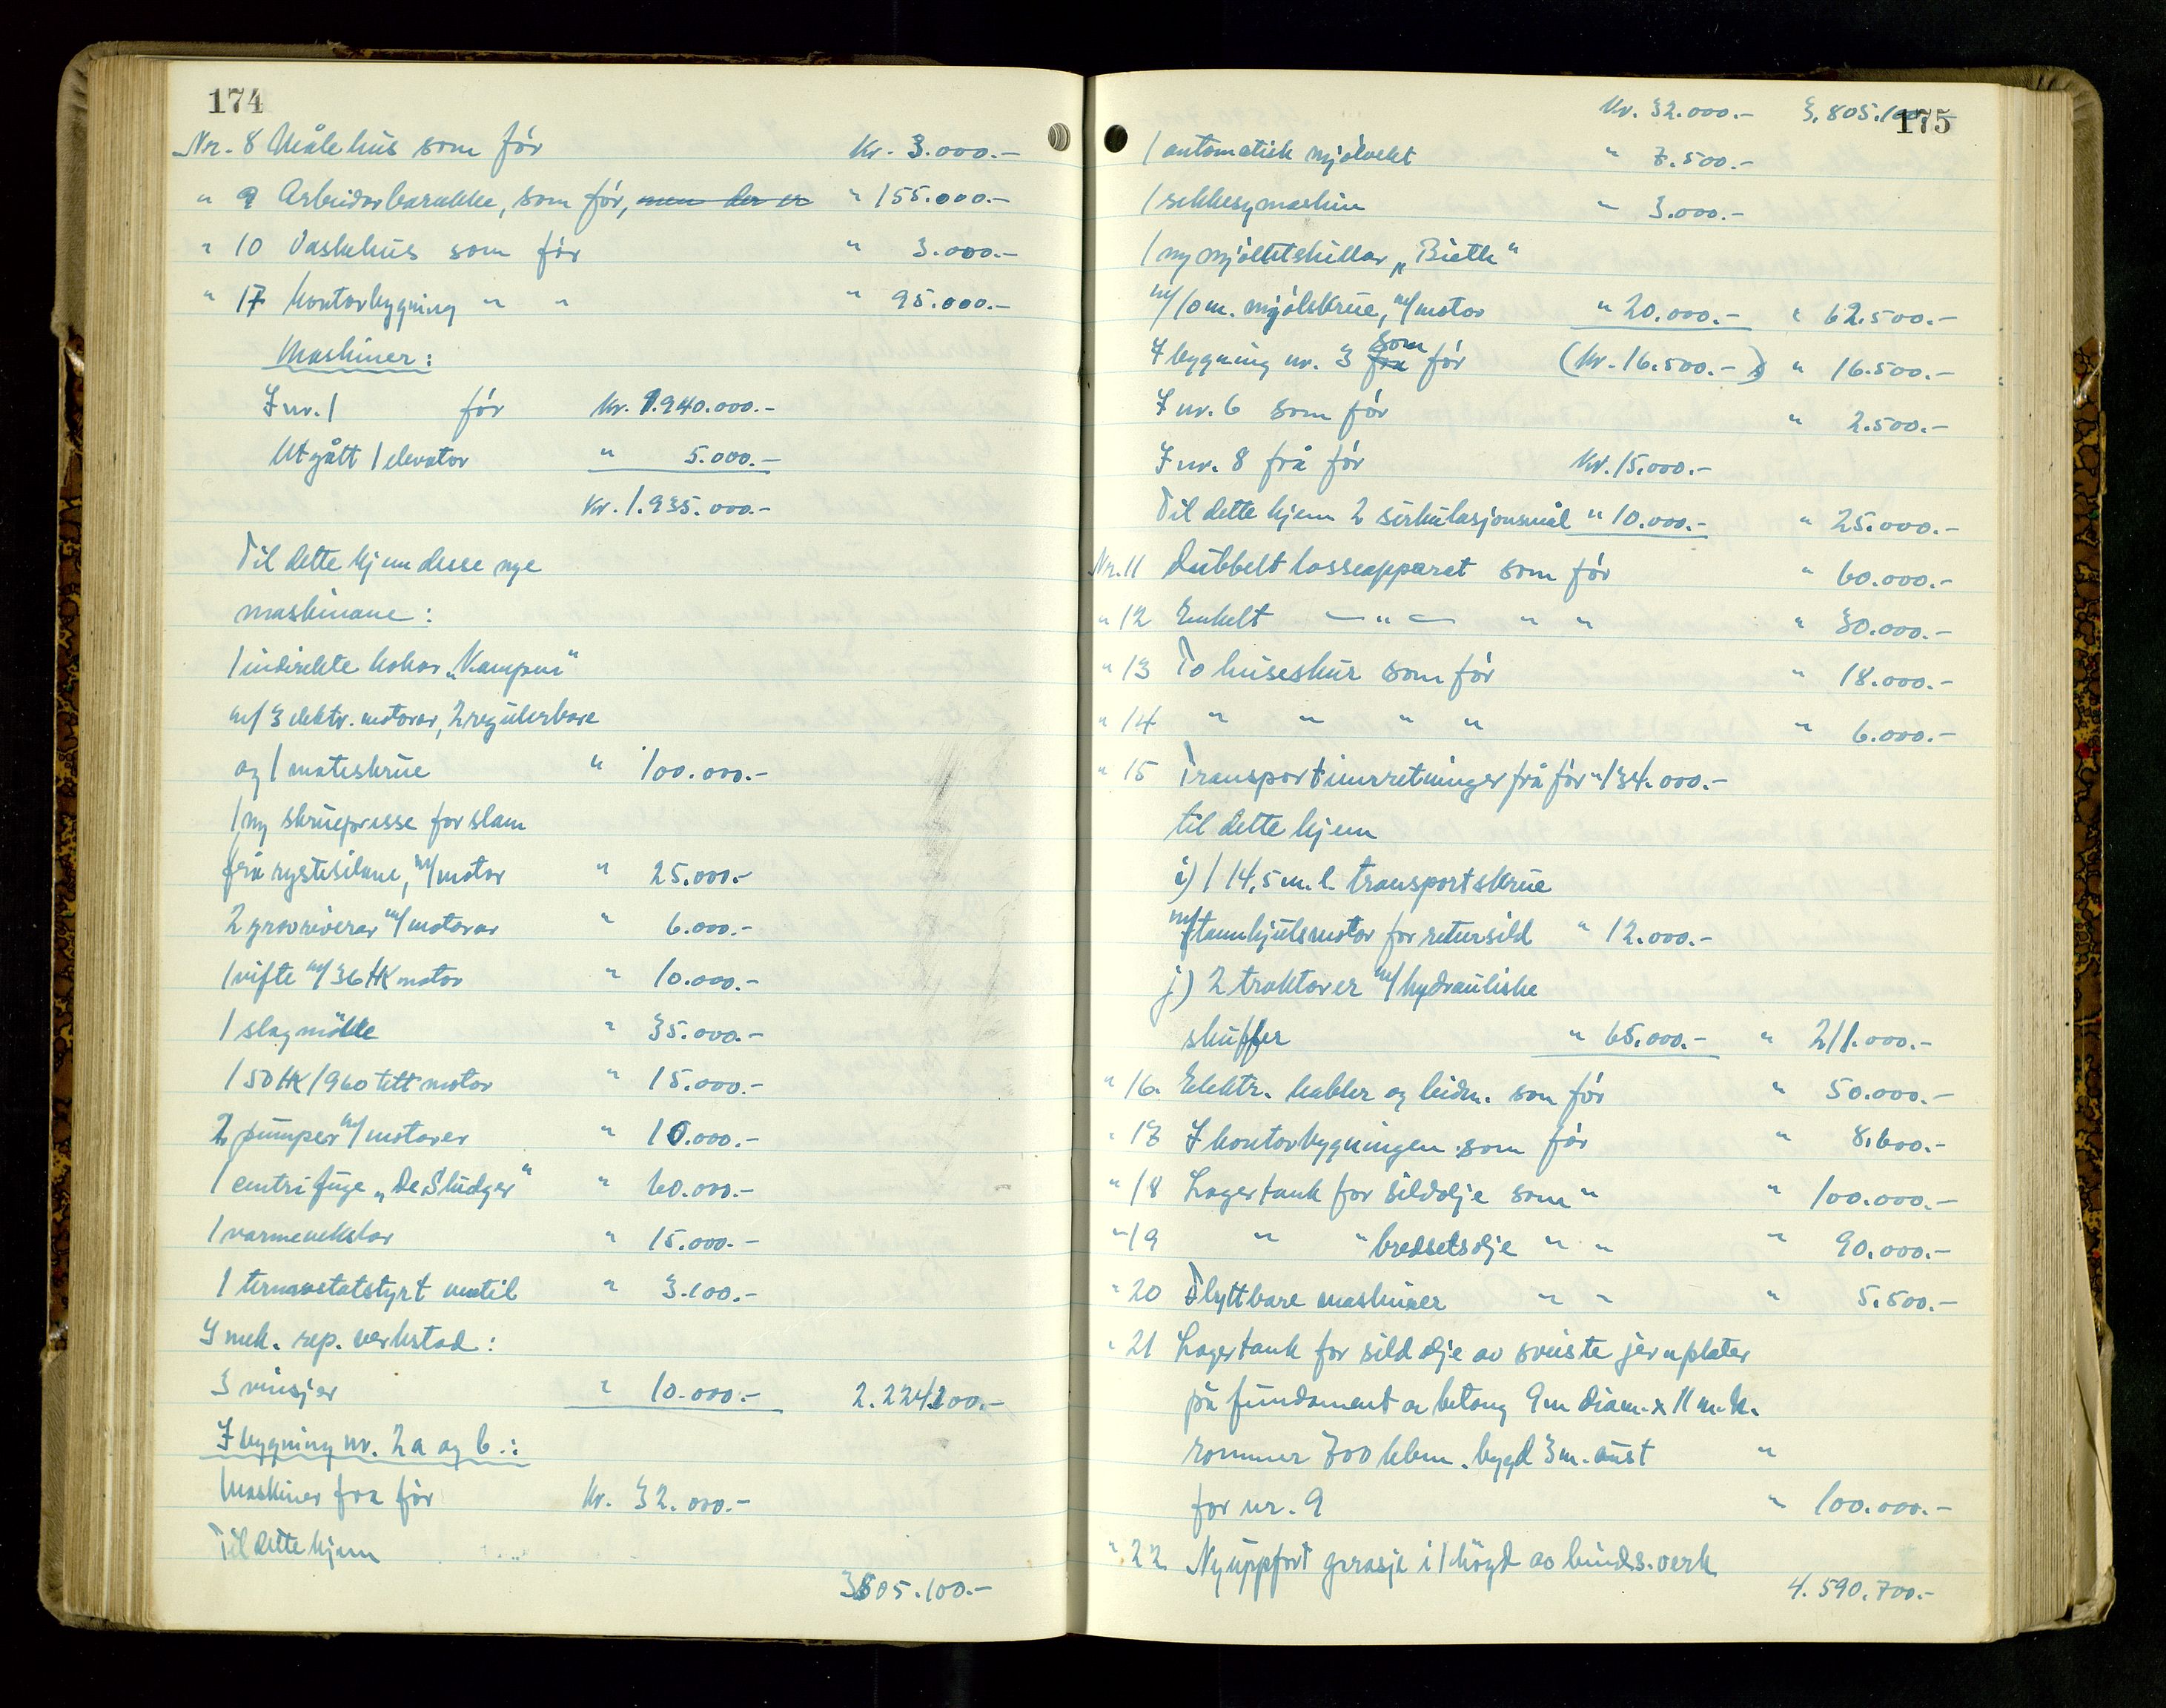 174
Nr. 8 Målehus som før Kr. 3.000.-
" 9 Arbeidarbarakke, som før, men der er " 155.000.-
" 10 Vaskehus som før " 3.000.-
" 17 Kontorbygning " " " 95.000.-
Maskiner:
I nr. 1 før Kr. 1.940.000.-
Utgått 1 elevator " 5.000.-
Kr. 1.935.000.-
Til dette kjem desse nye
maskinane:
1 indirekte kokar "Kampen"
m/ 3 elektr. motorar, 2 regulerbare
og 1 mateskrue " 100.000.-
1 ny skruepresse for slam
frå rystesilane, m/motor " 25.000.-
2 grovrivarar m/motorar " 6.000.-
1 vifte m/36 HK motor " 10.000.-
1 slagmølle " 35.000.-
1 50 HK/960 tett motor " 15.000.-
2 pumper m/motorer " 10.000.-
1 centrifuge "De Sludger" " 60.000.-
1 varmevekslar " 15.000.-
1 termostatstyrt ventil " 3.100.-
I mek. rep. verkstad:
3 vinsjer " 10.000.- 2.224.100.-
I bygning nr. 2a og b.:
Maskiner fra før Kr. 32.000.-
Til dette kjem
3805.100.-
175
Kr. 32.000.- 3.805.100
1 automatisk mjølvekt " 7.500.-
1 sekkesymaskin " 3.000.-
1 ny mjøltetskillar "Bieth"
m/10 m. mjølskrue, m/motor " 20.000.- " 62.500.-
I bygning nr. 3 fra som før (Kr. 16.500.-) " 16.500.-
I nr. 6 som før " 2.500.-
I nr. 8 frå før Kr. 15.000.-
Til dette kjem 2 sirkulasjonsmål " 10.000.- " 25.000.-
Nr. 11 Dubbelt losseapparat som før " 60.000.-
" 12 Enkelt — " — " " " 30.000.-
" 13 To huseskur som før " 18.000.-
" 14 " " " " " 6.000.-
" 15 Transportinnretninger frå før " 134.000.-
til dette kjem
i) 1 14,5 m. l. transportskrue
m/tannhjulsmotor for retursild " 12.000.-
j) 2 traktorer m/hydrauliske
skuffer " 65.000.- " 211.000.-
" 16. Elektr. kabler og leidn. som før " 50.000.-
" 17 I kontorbygningen som før " 8.600.-
" 18 Lagertank for sildolje som " " 100.000.-
" 19 " " bredsetsolje " " " 90.000.-
" 20 Flyttbare maskiner " " " 5.500.-
" 21 Lagertank for sildolje av sveiste jernplater
på fundament av betong 9 m diam. x 11 m. h.
rommer 700 kbm. bygd 3 m. aust "
for nr. 9 " 100.000.-
" 22 Nyuppført garasje i 1 høgd av binds.verk
4.590.700.-